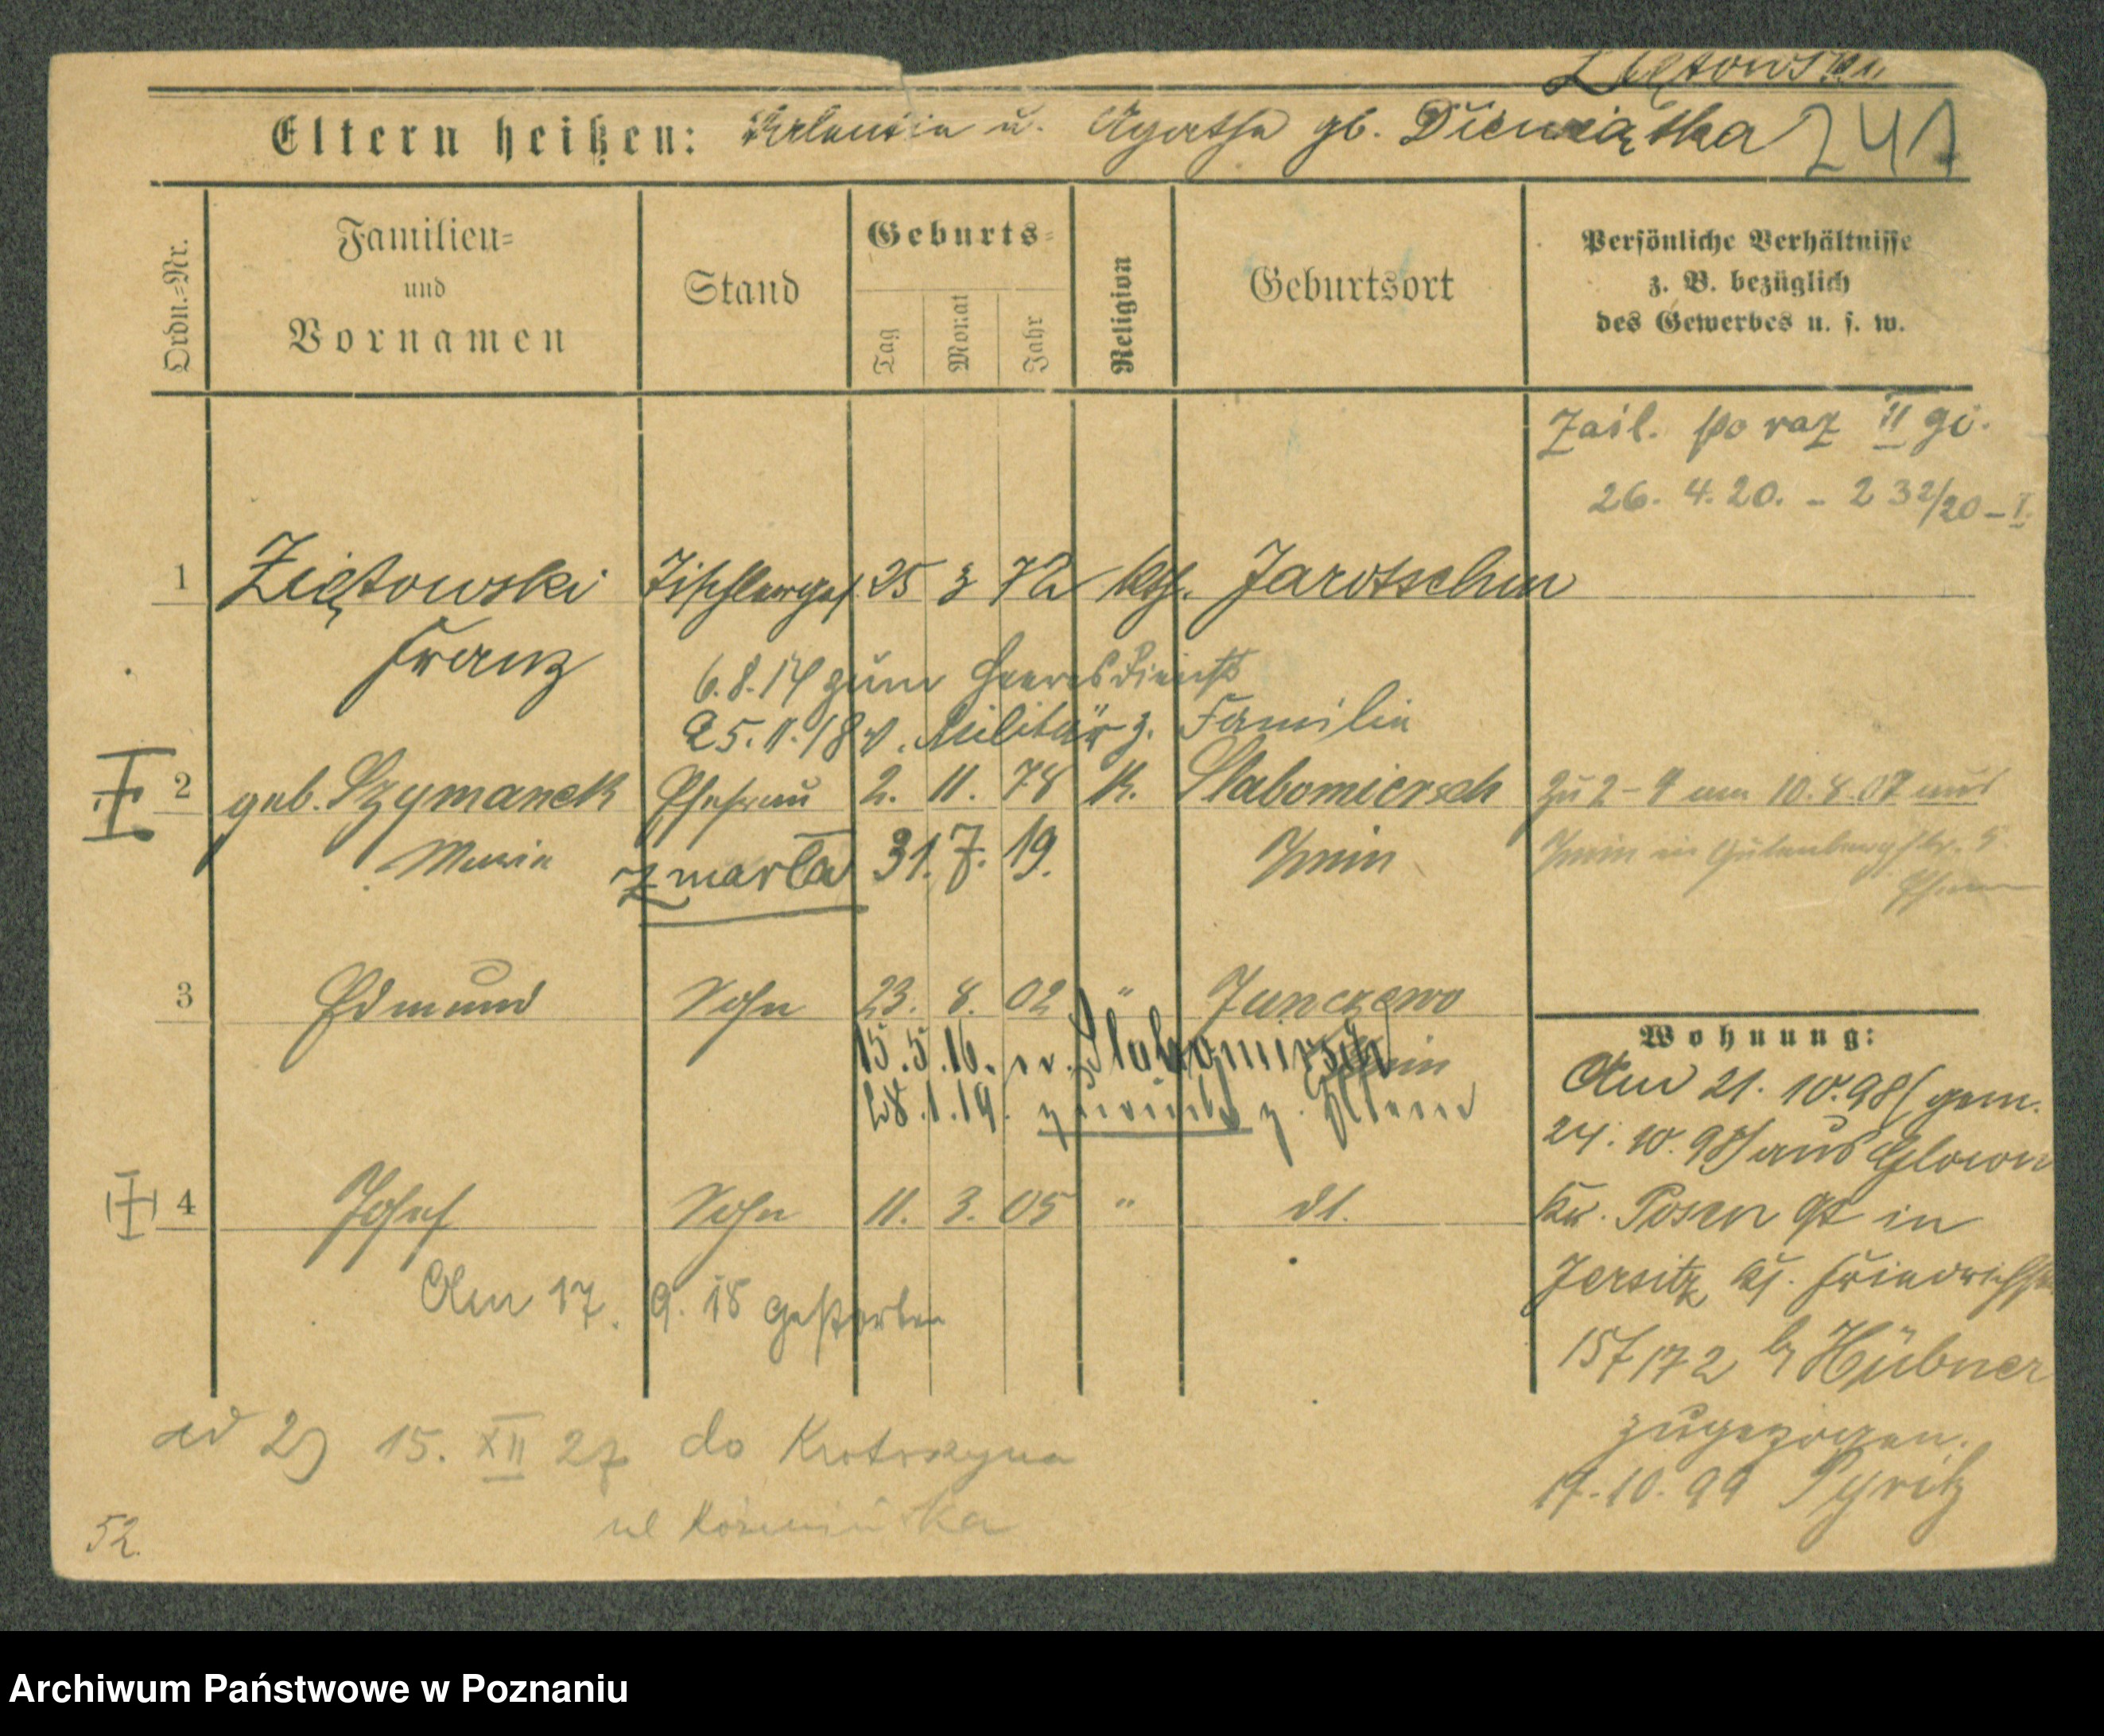 Ziętowski
Eltern heißen: Valentin u. Agatha gb. 247
Ordn.=Nr.
Familien= und Vornamen
Stand
Geburts=
Tag
Monat
Jahr
Religion
Geburtsort
Persönliche Verhältnisse
z. B. bezüglich
des Gewerbes u. s. w.
po raz II
26. 4. 20. - 232/20 - I.
1 Ziętowski Tischlerges 25 3 72 kth. Jarotschin
Franz
6.8.14 zum Heeresdienst
25.11.18 v. Militär z. Familie
2 geb. Szymanek Ehefrau 2. 11. 78 K. Slabomiersch Zu 2-4 am 10.8.07 aus
Maria zmarła 31. 7. 19. Znin Znin in Gutenbergstr. 5
3 Edmund Sohn 23. 8. 02 " Junczewo
15.5.16. n. Slabomirsch Znin
28.1.19. zurück z. Eltern
4 Josef Sohn 11. 3. 05 " dt.
Am 17. 9. 18 gestorben
Wohnung:
Am 21. 10. 98 / gem.
24. 10. 98 / aus Glowno
Kr. Posen Ost in
Jersitz
Hübner
zugezogen.
17.10.99 Pyritz
ad 2) 15. XII 27 do Krotoszyna
ul Koźmińska
52.
Archiwum Państwowe w Poznaniu